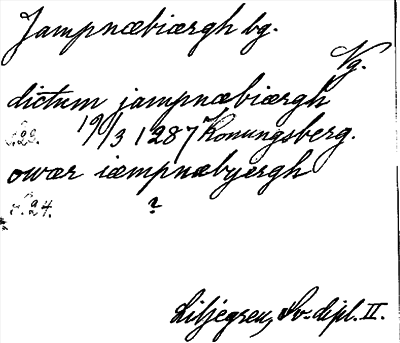 Jampnæbiærgh bg.
Vg.
dictum jampnæbiærgh
s. 22. 19/3 1287 Konungsberg.
owær iæmpnæbyergh
s. 24. ?
Liljegren, Sv. dipl. II.